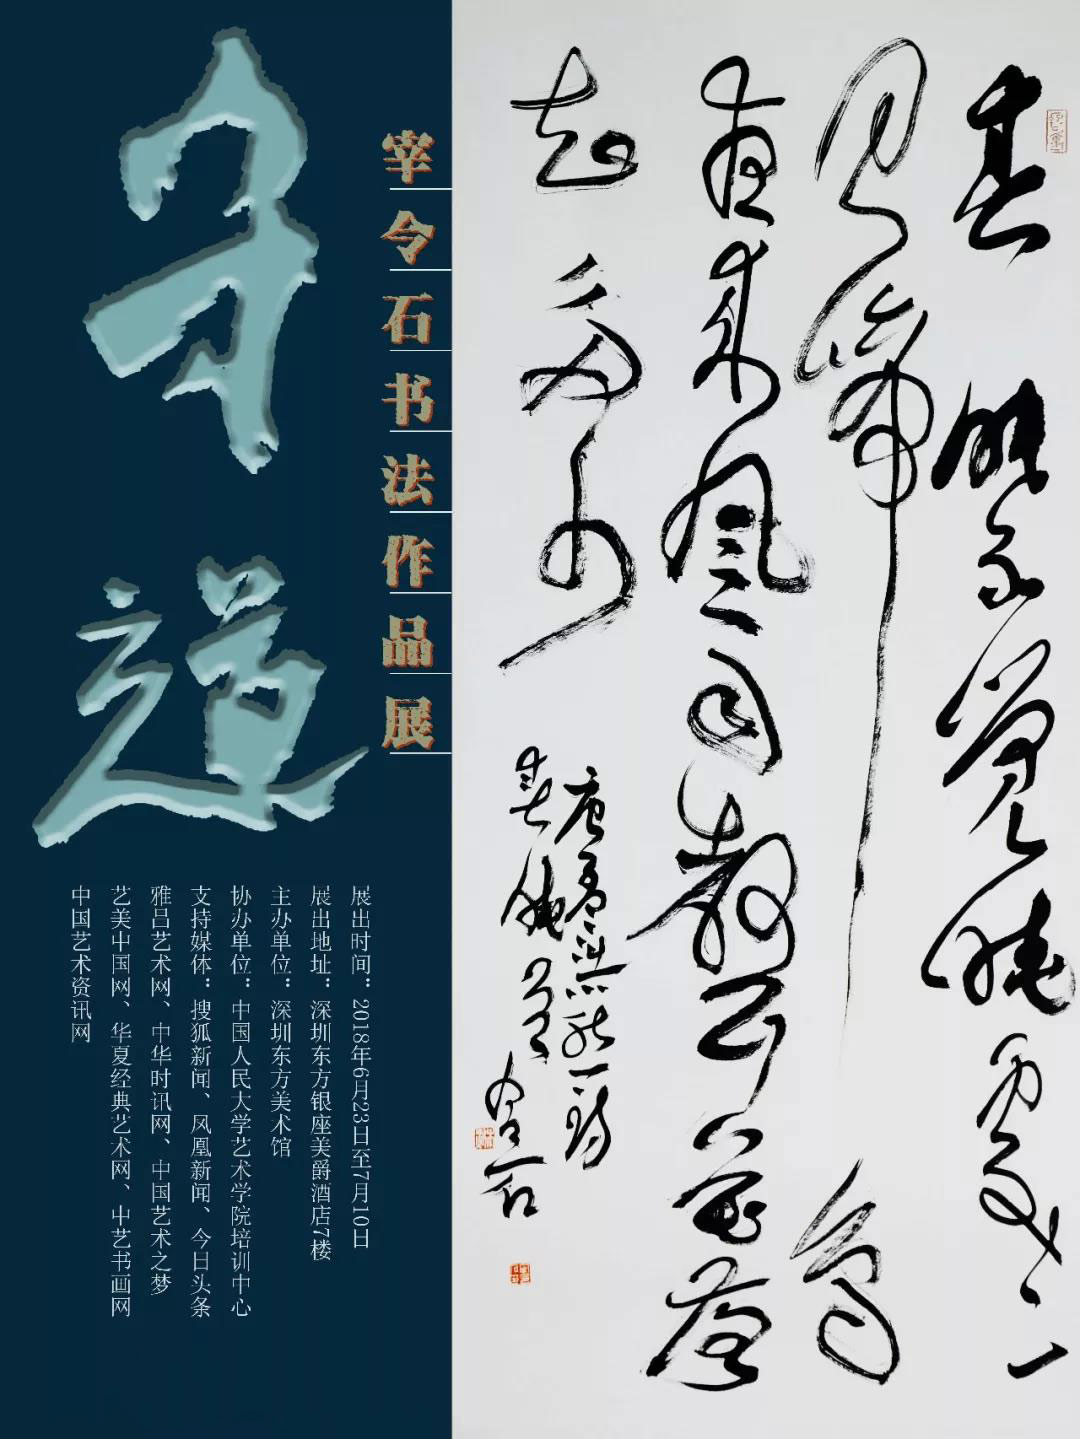 守道
宰令石书法作品展
展出时间：2018年6月23日至7月10日
展出地址：深圳东方银座美爵酒店7楼
主办单位：深圳东方美术馆
协办单位：中国人民大学艺术学院培训中心
支持媒体：搜狐新闻、凤凰新闻、今日头条
雅昌艺术网、中华时讯网、中国艺术之梦
艺美中国网、华夏经典艺术网、中艺书画网
中国艺术资讯网
春眠不覺曉處〻
聞啼鳥
夜来風雨聲花落
知多少
唐孟浩然詩
春曉 令石